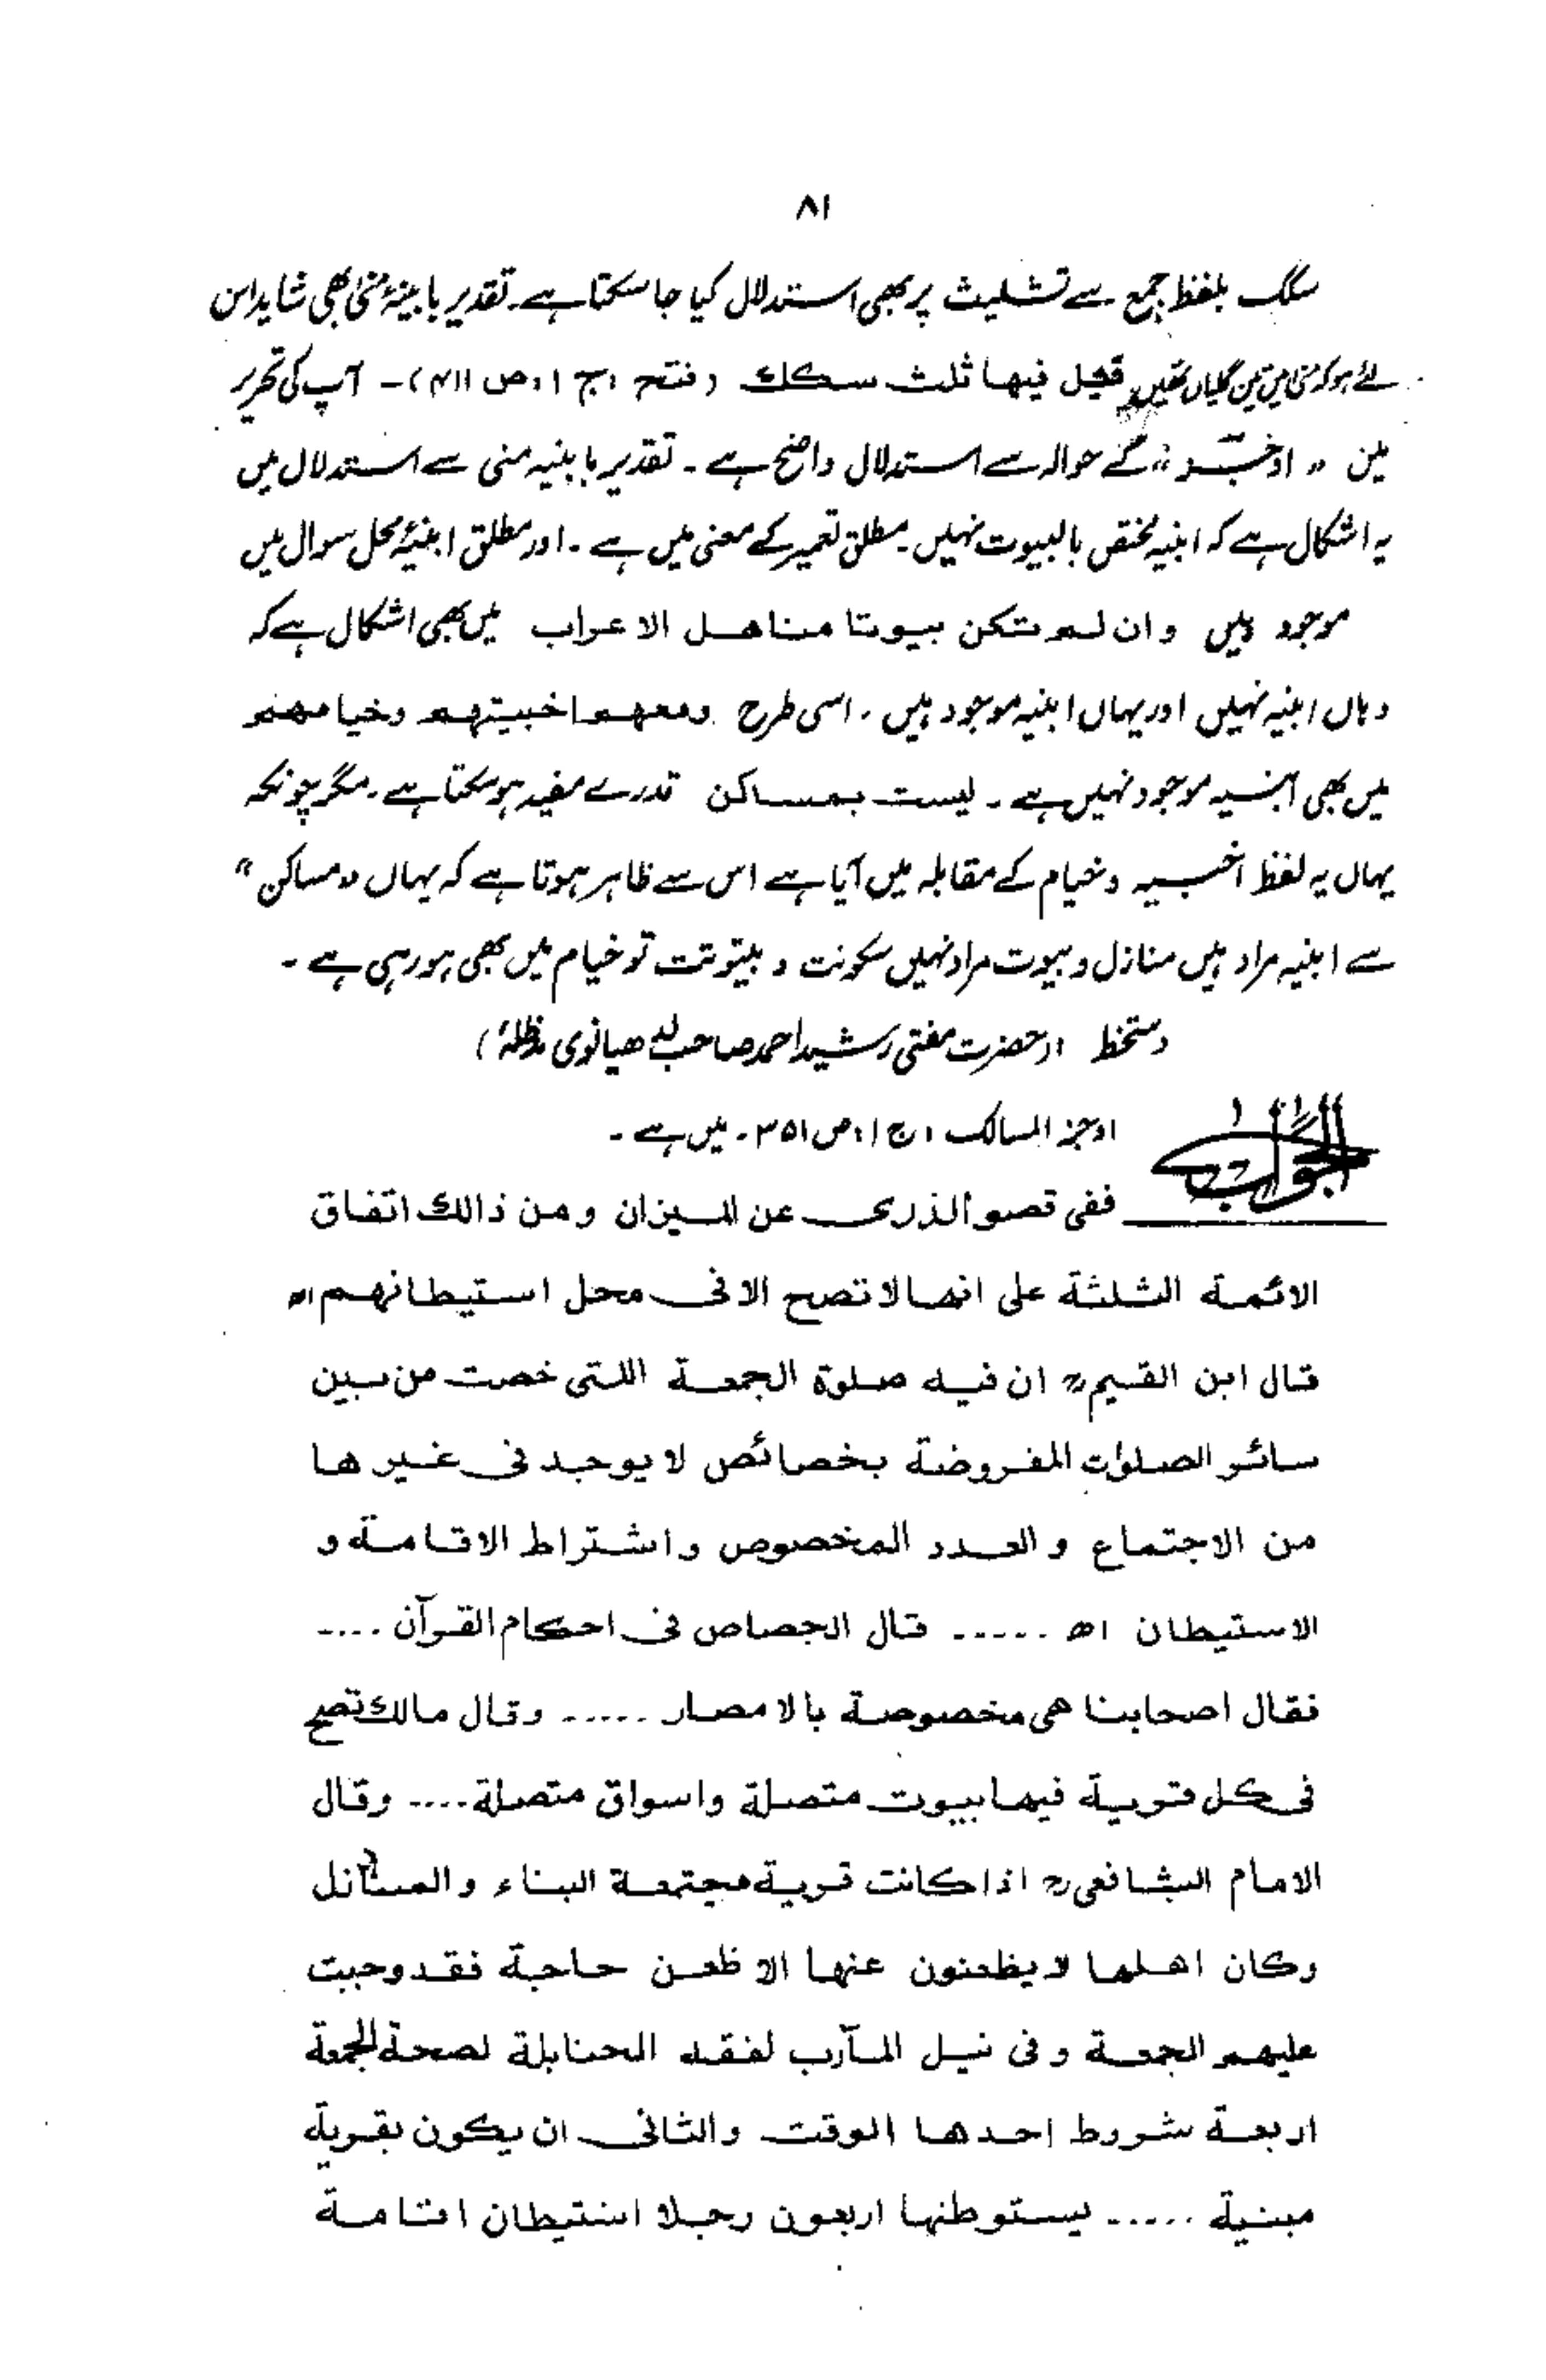 ۸۱
سکک بلفظ جمع سے تشلیث پر بھی استدلال کیا جا سکتا ہے۔ تقدیر بابینۂ منیٰ بھی شاید اس
لئے ہو کہ منیٰ میں تین گلیاں تھیں قیل فیھا ثلث سکك (فتح ج ۱، ص ۴۱۱)۔ آپ کی تحریر
میں " اوجز " کے حوالہ سے استدلال واضح ہے۔ تقدیر بابنیہ منی سے استدلال میں
یہ اشکال ہے کہ ابنیہ مختص بالبیوت نہیں۔ مطلق تعمیر کے معنی میں ہے۔ اور مطلق ابنیۂ محل سوال میں
موجود ہیں وان لم تکن بیوتا مناھل الاعراب میں بھی اشکال ہے کہ
وہاں ابنیہ نہیں اور یہاں ابنیہ موجود ہیں، اسی طرح ومعھم اخبیتھم وخیامھم
میں بھی ابنیہ موجود نہیں ہے۔ لیست بمساکن قدرے مفید ہو سکتا ہے۔ مگر چونکہ
یہاں یہ لفظ اخبیہ و خیام کے مقابلہ میں آیا ہے اس سے ظاہر ہوتا ہے کہ یہاں "مساکن"
سے ابنیہ مراد ہیں منازل و بیوت مراد نہیں سکونت و بیتوتت تو خیام میں بھی ہو رہی ہے۔
دستخط (حضرت مفتی رشید احمد صاحب لدھیانوی مدظلہٗ)
الجواب
اوجز المسالک، ج ۱، ص ۳۵۱۔ میں ہے۔
ففی قصو الذری عن المیزان ومن ذالك اتفاق
الائمة الثلثة علی انھا لا تصح الا فی محل استیطانھم اھ
قال ابن القیمؒ ان فیه صلوة الجمعة اللتی خصت من بین
سائر الصلوات المفروضة بخصائص لا یوجد فی غیرھا
من الاجتماع و العدد المخصوص واشتراط الاقامة و
الاستیطان اھ ..... قال الجصاص فی احکام القرآن ....
فقال اصحابنا ھی مخصوصة بالامصار ..... وقال مالك تصح
فی کل قریة فیھا بیوت متصلة واسواق متصلة .... وقال
الامام الشافعیؒ اذا کانت قریة مجتمعة البناء والمنازل
وکان اھلھا لا یظعنون عنھا الا ظعن حاجة فقد وجبت
علیھم الجمعة وفی نیل المآرب لفقه الحنابلة لصحة الجمعة
اربعة شروط احدھا الوقت والثانی ان یکون بقریة
مبنیة ..... یستوطنھا اربعون رجلا استیطان اقامة